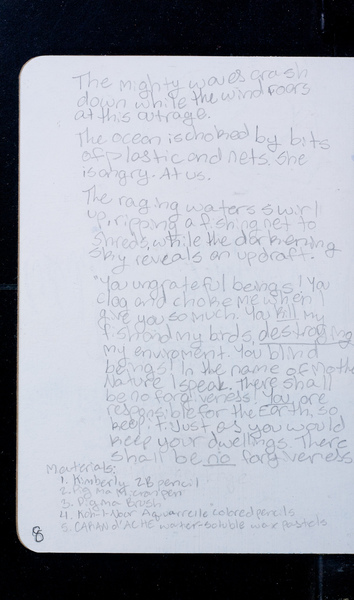 The mighty waves crash
down while the wind roars
at this outrage.
The ocean is choked by bits
of plastic and nets. She
is angry. At us.
The raging waters swirl
up, ripping a fishing net to
shreds, while the darkening
sky reveals an updraft.
"You ungrateful beings! You
clog and choke me when I
give you so much. You kill my
fish and my birds, destroying
my enviroment. You blind
beings! In the name of Mother
Nature I speak. There shall
be no forgiveness! You are
responsible for the Earth, so
keep it just as you would
keep your dwellings. There
shall be no forgiveness
Materials:
1. Kimberly 2B pencil
2. Pigma Micron pen
3. Pigma Brush
4. Aquarelle colored pencils
5. CARAN d'ACHE water-soluble wax pastels
8